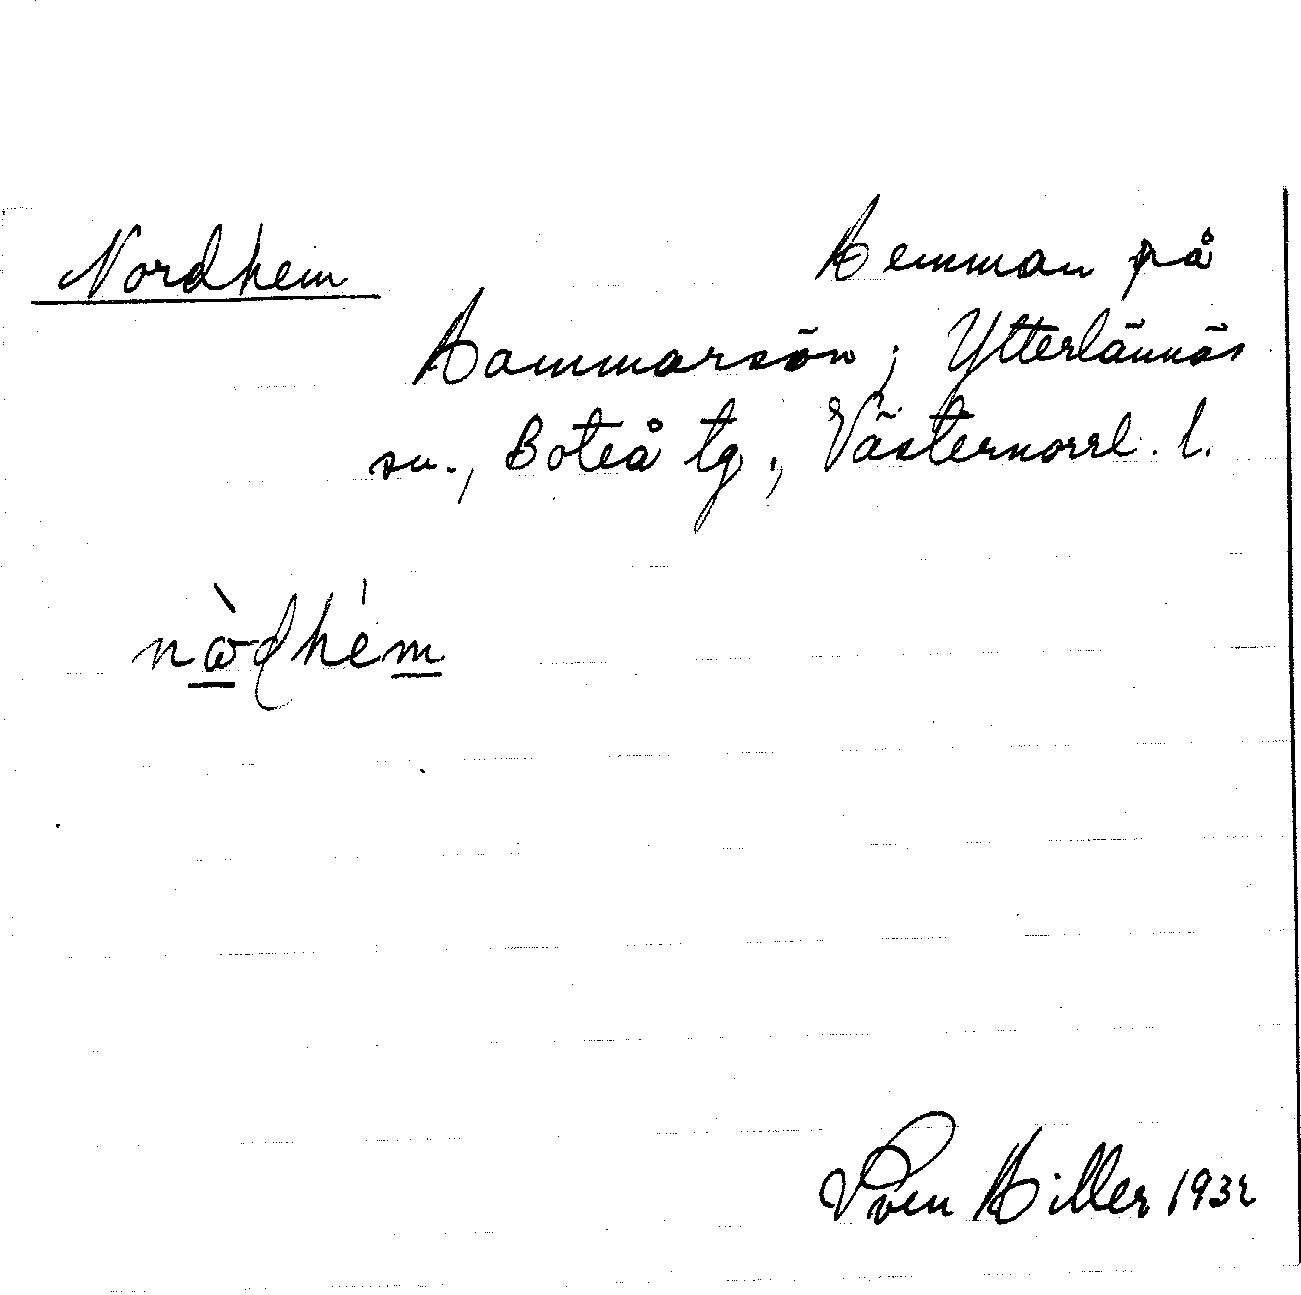 Nordhem Hemman på
Hammarsön, Ytterlännäs
sn., Boteå tg., Västernorrl. l.
nòdhém
Sven Hiller 1932